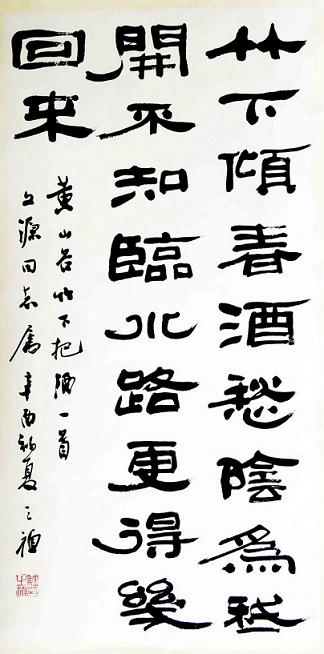 竹下傾春酒愁陰爲我
開不知臨水路更得幾
回來
黄山谷竹下把酒一首
源同志屬 辛酉初夏之